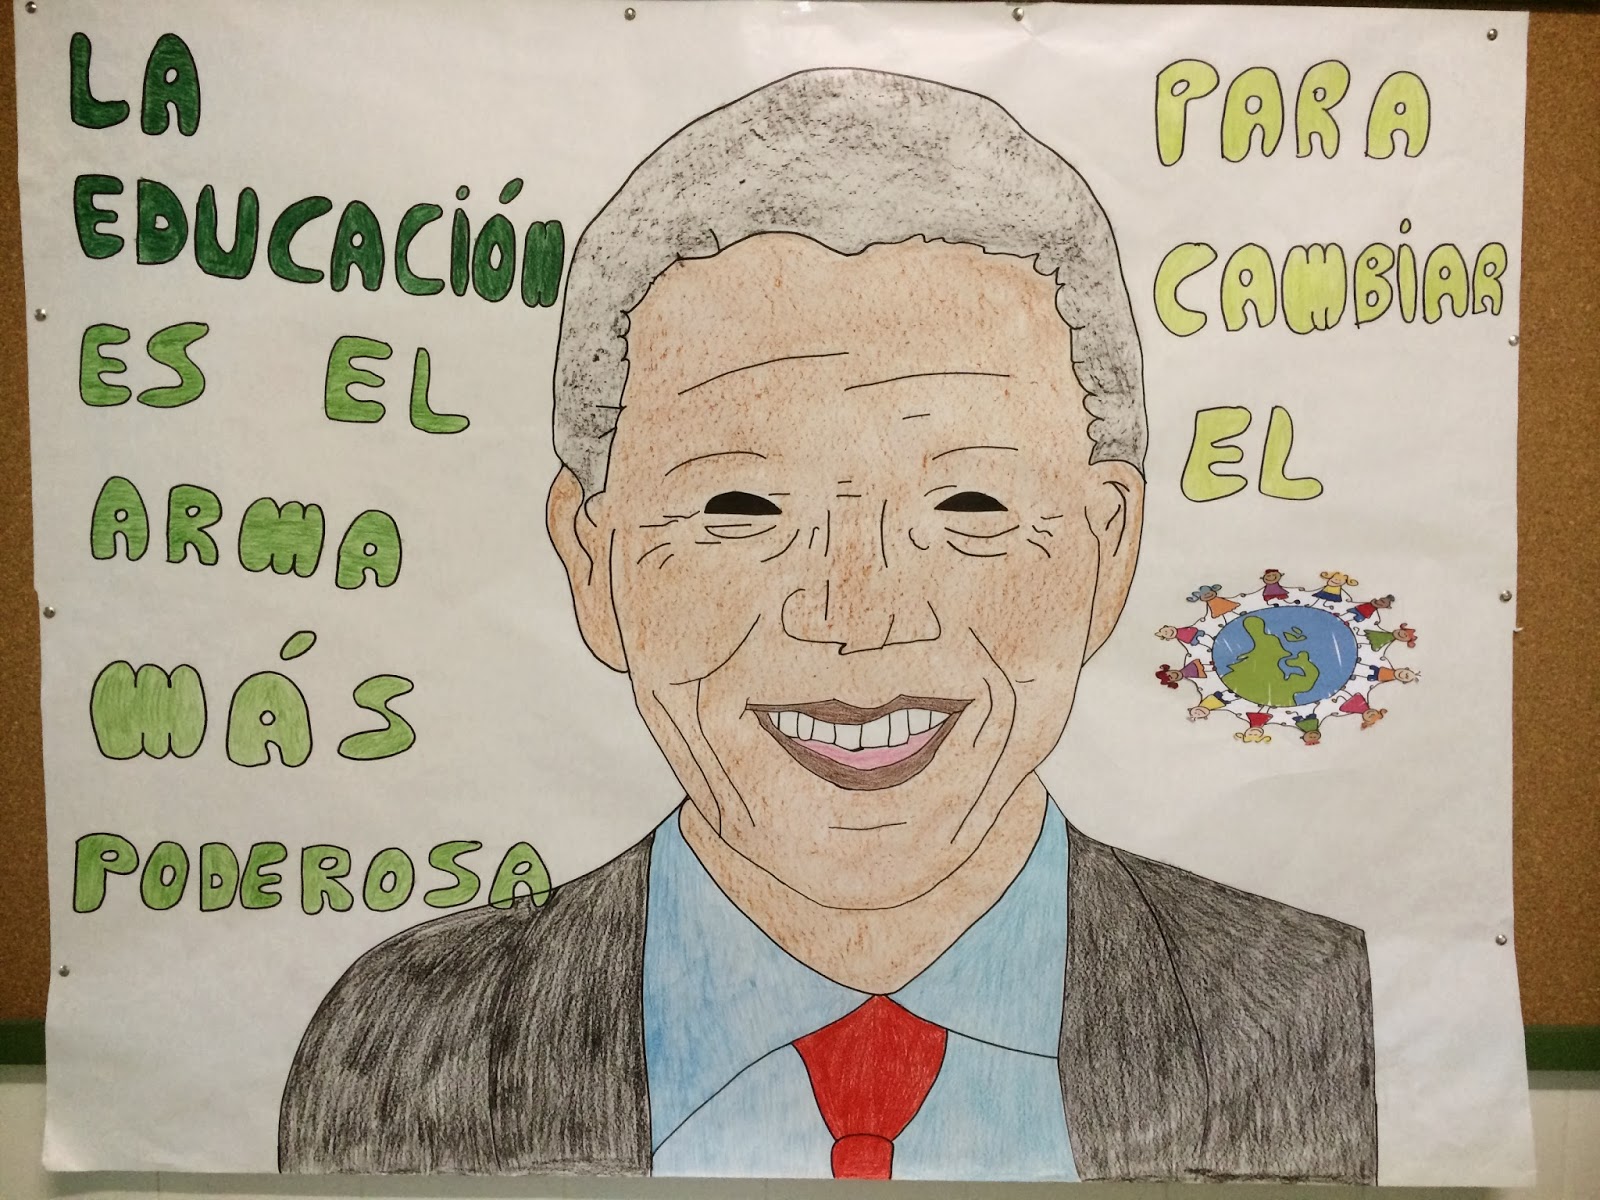 LA
EDUCACIÓN
ES EL
ARMA
MÁS
PODEROSA
PARA
CAMBIAR
EL